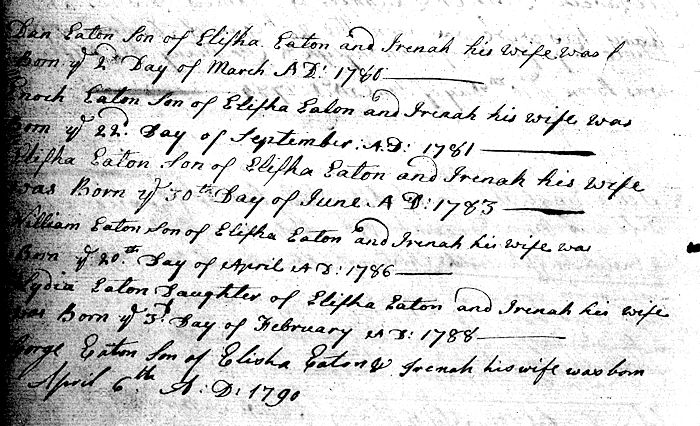 Dan Eaton Son of Elisha Eaton and Irenah his wife was
Born ye 2d Day of March AD: 1780
Enoch Eaton Son of Elisha Eaton and Irenah his wife was
Born ye 22d Day of September: AD: 1781
Elisha Eaton Son of Elisha Eaton and Irenah his wife
was Born ye 30th Day of June AD: 1783
William Eaton Son of Elisha Eaton and Irenah his wife was
Born ye 20th Day of April AD: 1786
Lydia Eaton Daughter of Elisha Eaton and Irenah his wife
was Born ye 3d Day of February AD: 1788
George Eaton Son of Elisha Eaton & Irenah his wife was born
April 6th A: D: 1790